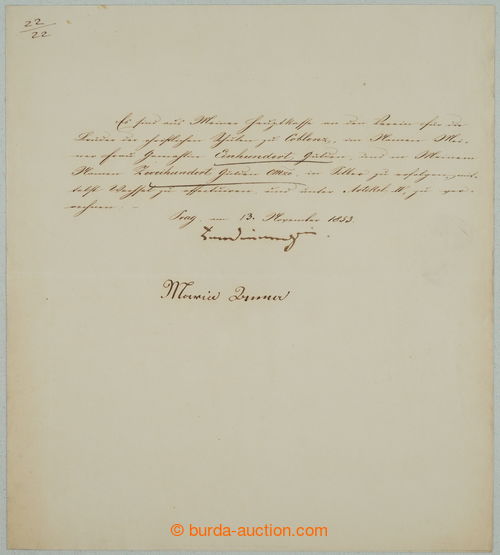 22
22
Es sind aus Meiner Hauptkasse an den Verein für die
Kinder der christlichen zu Coblenz, im Namen Mei-
ner Frau Gemahlin Einhundert Gulden, und in Meinem
Namen Zweihundert Gulden CMze. in Silber zu erfolgen, mit-
telst Wechsel zu effectuiren, und unter Artikel zu ver-
rechnen. –
Prag, am 13. November 1853.
Ferdinand
Maria Anna
© burda-auction.com